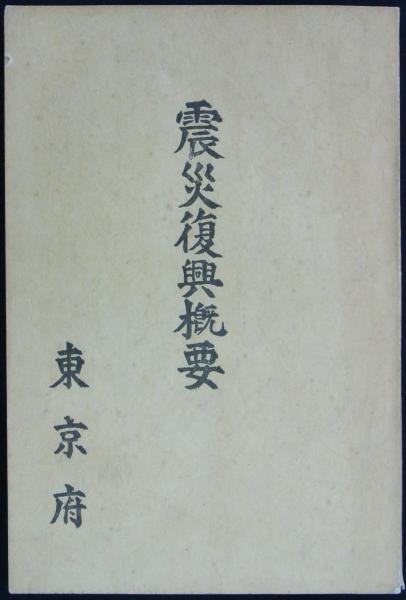 震災復興概要
東京府